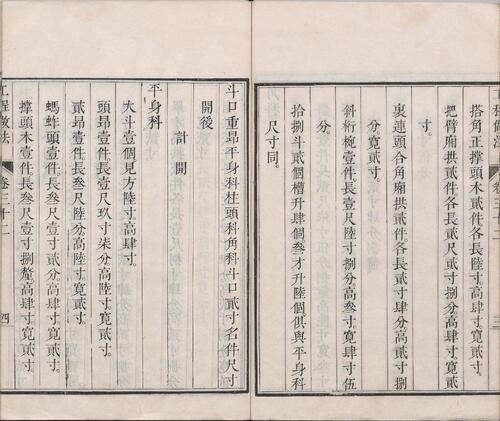 搭角正撑頭木貳件各長陸寸高肆寸寬貳寸。
把臂廂拱貳件各長貳尺貳寸捌分高肆寸寬貳
寸。
裏連頭合角廂拱貳件各長貳寸肆分高貳寸捌
分寬貳寸。
斜斫椀壹件長壹尺陸寸捌分高叁寸寬肆寸伍
分。
拾捌斗貳個槽升肆個叁才升陸個俱與平身科
尺寸同。
斗口重昂平身科柱頭科角科斗口貳寸名件尺寸
開後
計開
平身科
大斗壹個見方陸寸高肆寸。
頭昂壹件長壹尺玖寸柒分高陸寸寬貳寸。
貳昂壹件長叁尺陸分高陸寸寬貳寸。
螞蚱頭壹件長叁尺壹寸貳分高肆寸寬貳寸。
撑頭木壹件長叁尺壹寸捌釐高肆寸寬貳寸。
工程做法
卷三十二
四